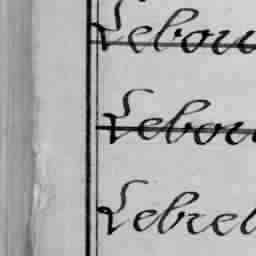 Lebou
Lebou
Lebrel